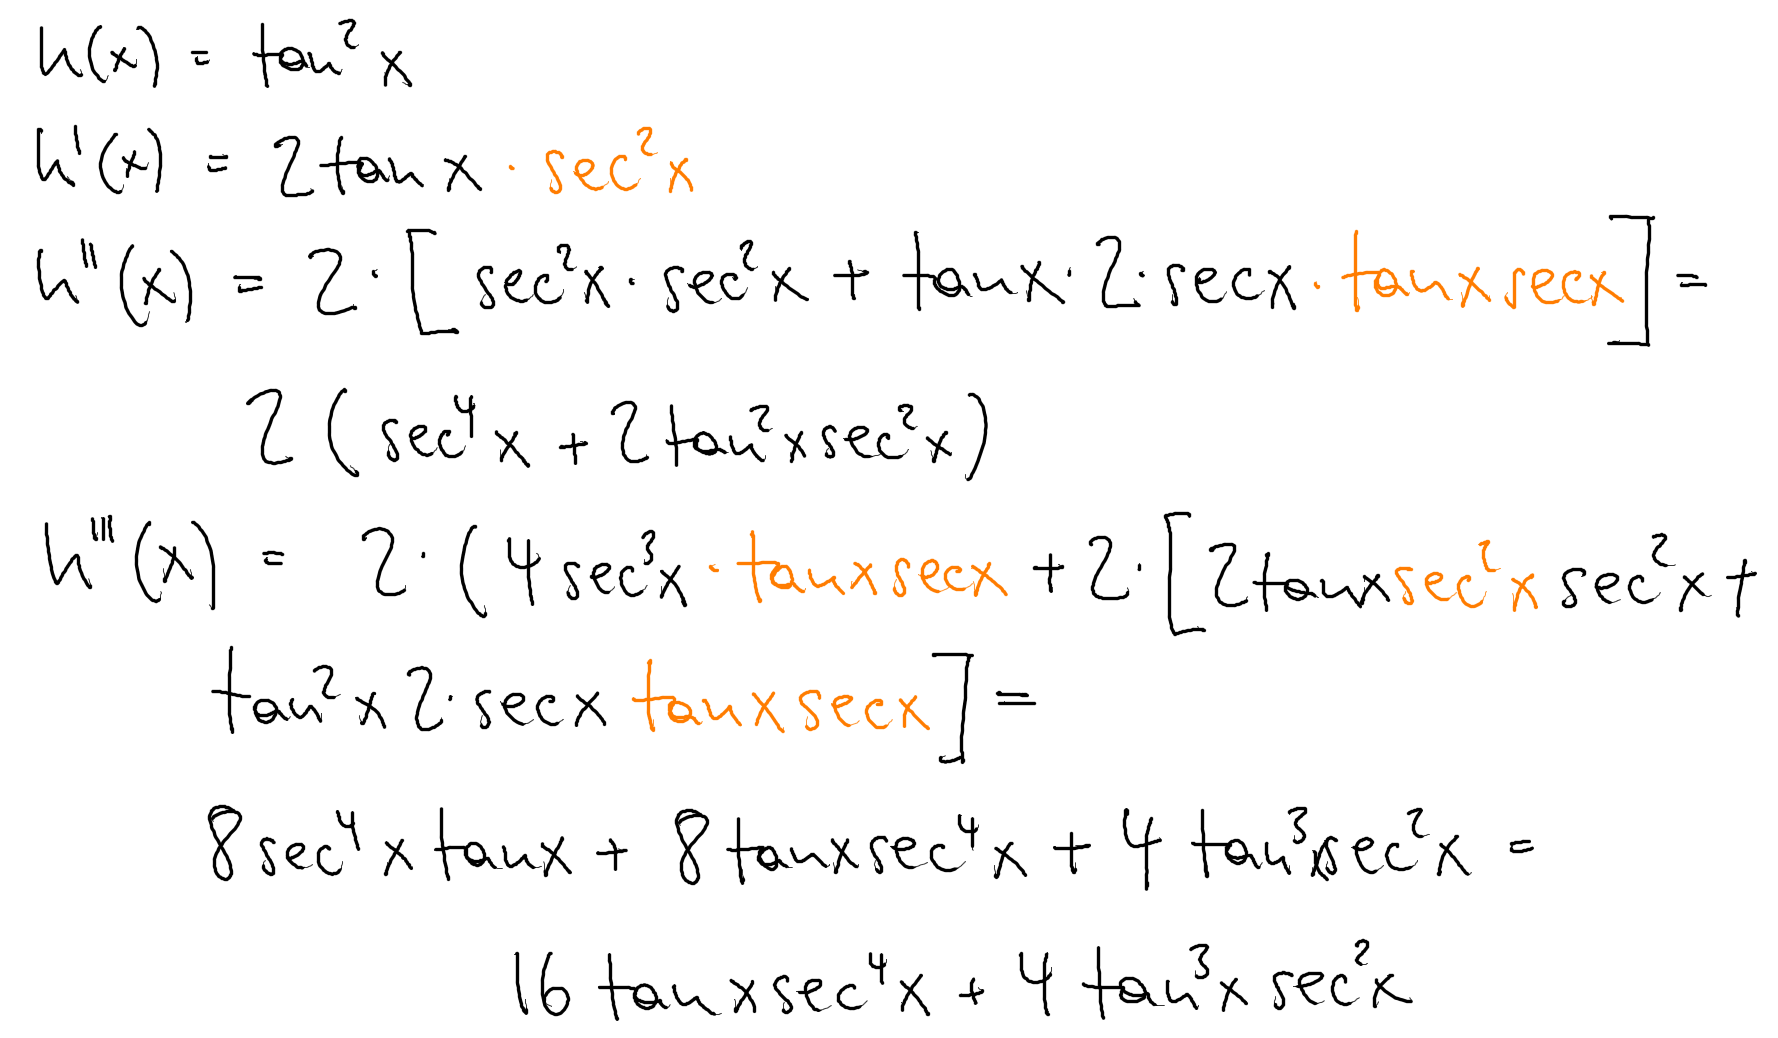 h(x) = tan²x
h'(x) = 2tanx · sec²x
h''(x) = 2·[sec²x · sec²x + tanx·2·secx · tanxsecx] =
2(sec⁴x + 2tan²xsec²x)
h'''(x) = 2·(4sec³x · tanxsecx + 2·[2tanxsec²x sec²x +
tan²x2·secx tanxsecx] =
8sec⁴xtanx + 8tanxsec⁴x + 4tan³xsec²x =
16tanxsec⁴x + 4tan³xsec²x